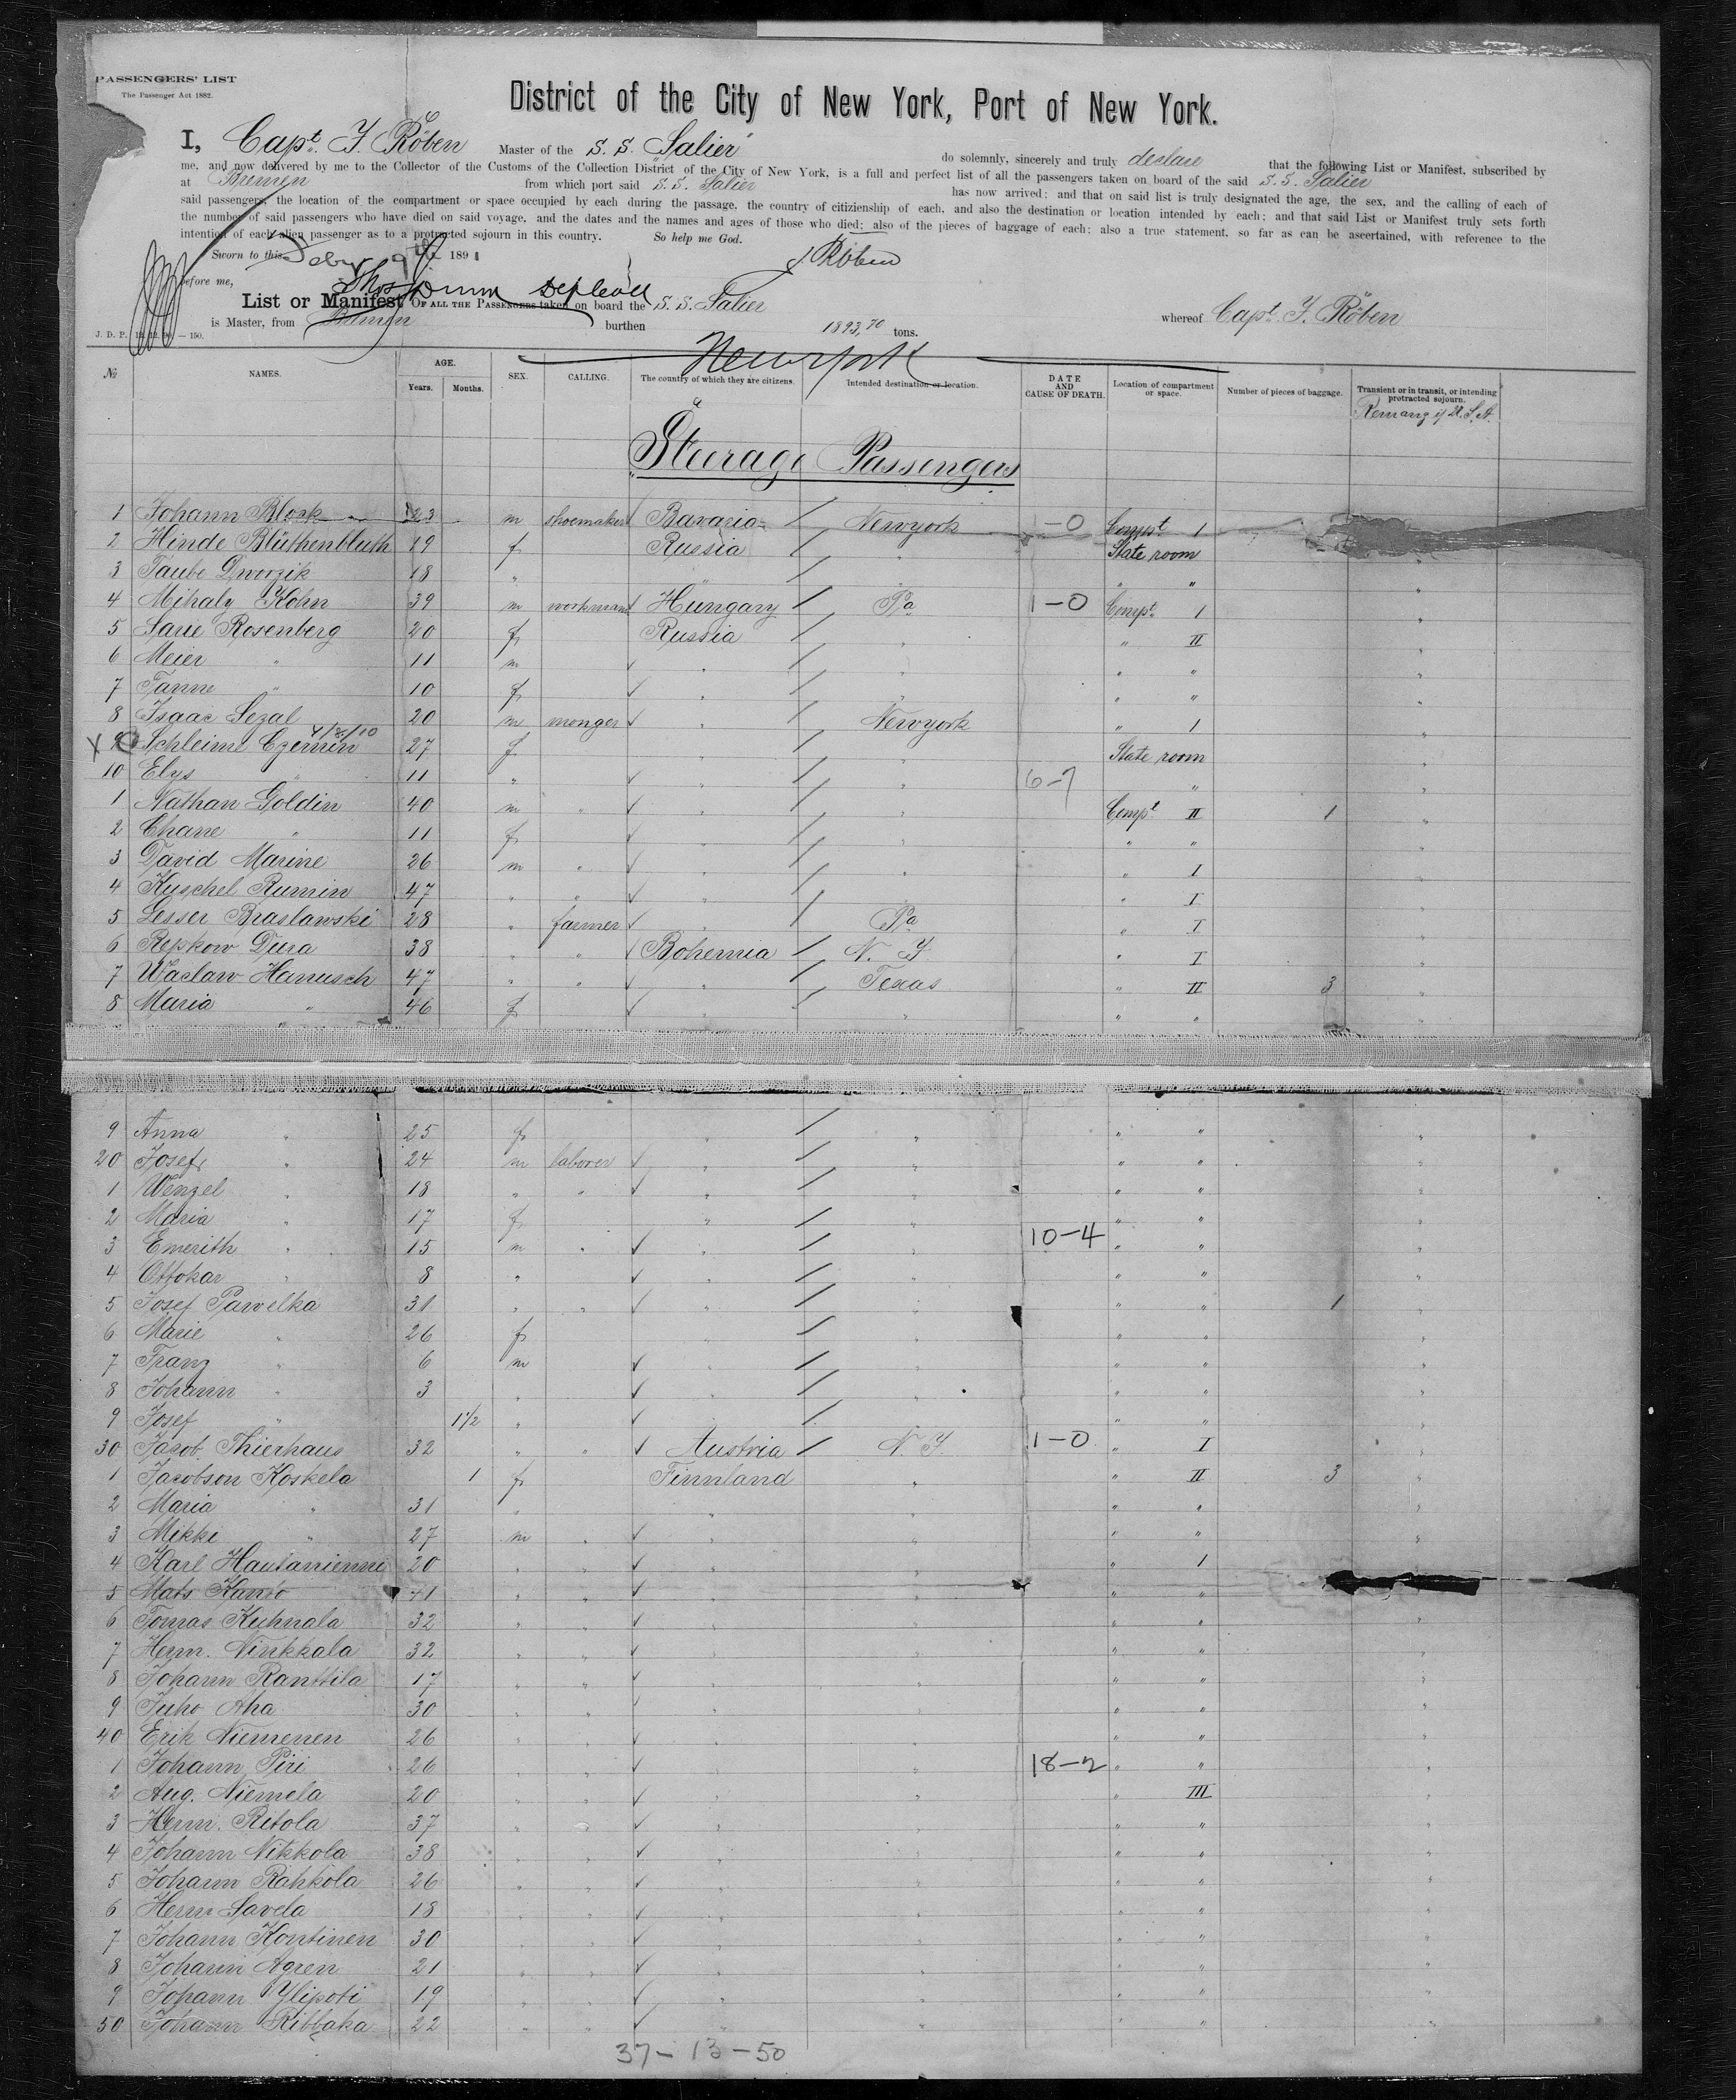 PASSENGERS' LIST
The Passenger Act 1882.
District of the City of New York, Port of New York.
I, Capt. F. Röben Master of the S. S. Salier do solemnly, sincerely and truly declare that the following List or Manifest, subscribed by
me, and now delivered by me to the Collector of the Customs of the Collection District of the City of New York, is a full and perfect list of all the passengers taken on board of the said S. S. Salier
at Bremen from which port said S. S. Salier has now arrived; and that on said list is truly designated the age, the sex, and the calling of each of
said passengers, the location of the compartment or space occupied by each during the passage, the country of citizienship of each, and also the destination or location intended by each; and that said List or Manifest truly sets forth
the number of said passengers who have died on said voyage, and the dates and the names and ages of those who died; also of the pieces of baggage of each; also a true statement, so far as can be ascertained, with reference to the
intention of each alien passenger as to a protracted sojourn in this country. So help me God.
Sworn to this Feby 9th 1891 F. Röben
before me,
List or Manifest OF ALL THE PASSENGERS taken on board the S. S. Salier whereof Capt. F. Röben
is Master, from Bremen burthen 1893,70 tons.
J. D. P. — 150.
Newyork
№ NAMES. AGE. Years. Months. SEX. CALLING. The country of which they are citizens. Intended destination or location. DATE AND CAUSE OF DEATH. Location of compartment or space. Number of pieces of baggage. Transient or in transit, or intending protracted sojourn.
Remang i/ U. S. A.
Steerage Passengers
1 Johann Block 23 m shoemaker Bavaria Newyork 1-0 Compt. 1
2 Hinde Blüthenbluth 19 f Russia " State room
3 Taube Dworzik 18 " " " " "
4 Mihaly Kohn 39 m workman Hungary Pa 1-0 Compt. 1 "
5 Sarie Rosenberg 20 f Russia " " II "
6 Meier " 11 m " " " " "
7 Fanne " 10 f " " " " "
8 Isaac Sezal 20 m monger " Newyork " 1 "
4/8/10
X 9 Schleime Czernin 27 f " " State room "
10 Elys " 11 " " " 6-7 " "
1 Nathan Goldin 40 m " " " Compt. II 1 "
2 Chane " 11 f " " " " "
3 David Marine 26 m " " " " I "
4 Kuschel Rumin 47 " " " " " I "
5 Lesser Braslawski 28 " farmer " Pa " I "
6 Repkow Dura 38 " " Bohemia N. Y. " I "
7 Waclaw Hanusch 47 " " " Texas " II 3 "
8 Maria " 46 f " " " " "
9 Anna " 25 f " " " " "
20 Josef " 24 m laborer " " " " "
1 Wenzel " 18 " " " " " " "
2 Maria " 17 f " " " " "
3 Emerith " 15 m " " " 10-4 " " "
4 Ottokar " 8 " " " " " "
5 Josef Pawelka 31 " " " " " " 1 "
6 Marie " 26 f " " " " "
7 Franz " 6 m " " " " "
8 Johann " 3 " " " " " "
9 Josef " 1 1/2 " " " " " "
30 Jacob Thierhaus 32 " " Austria N. Y. 1-0 " I "
1 Jacobson Koskela 1 f Finnland " " II 3 "
2 Maria " 31 " " " " " "
3 Mikki " 27 m " " " " " "
4 Karl Hautaniemi 20 " " " " " 1
5 Mats Kanto 41 " " " " " "
6 Tomas Kuhnala 32 " " " " " " "
7 Herm. Ninkkala 32 " " " " " " "
8 Johann Ranttila 17 " " " " " " "
9 Juho Aha 30 " " " " " " "
40 Erik Niemenen 26 " " " " " " "
1 Johann Piri 26 " " " " 18-2 " " "
2 Aug. Niemela 20 " " " " " III "
3 Herm. Ritola 37 " " " " " " "
4 Johann Nikkola 38 " " " " " " "
5 Johann Rahkola 26 " " " " " " "
6 Herm Savela 18 " " " " " " "
7 Johann Kontinen 30 " " " " " " "
8 Johann Agren 21 " " " " " " "
9 Johann Ylipoti 19 " " " " " " "
50 Johann Ribbaka 22 " " " " " " "
37-13-50